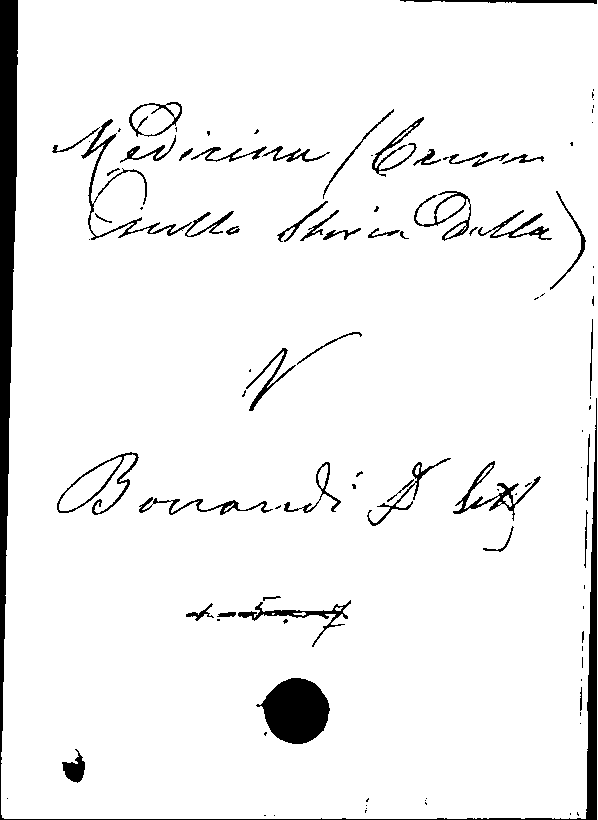 Medicina (Cenni
sulla Storia Della)
V
Bonandi: D
1. 5. 7